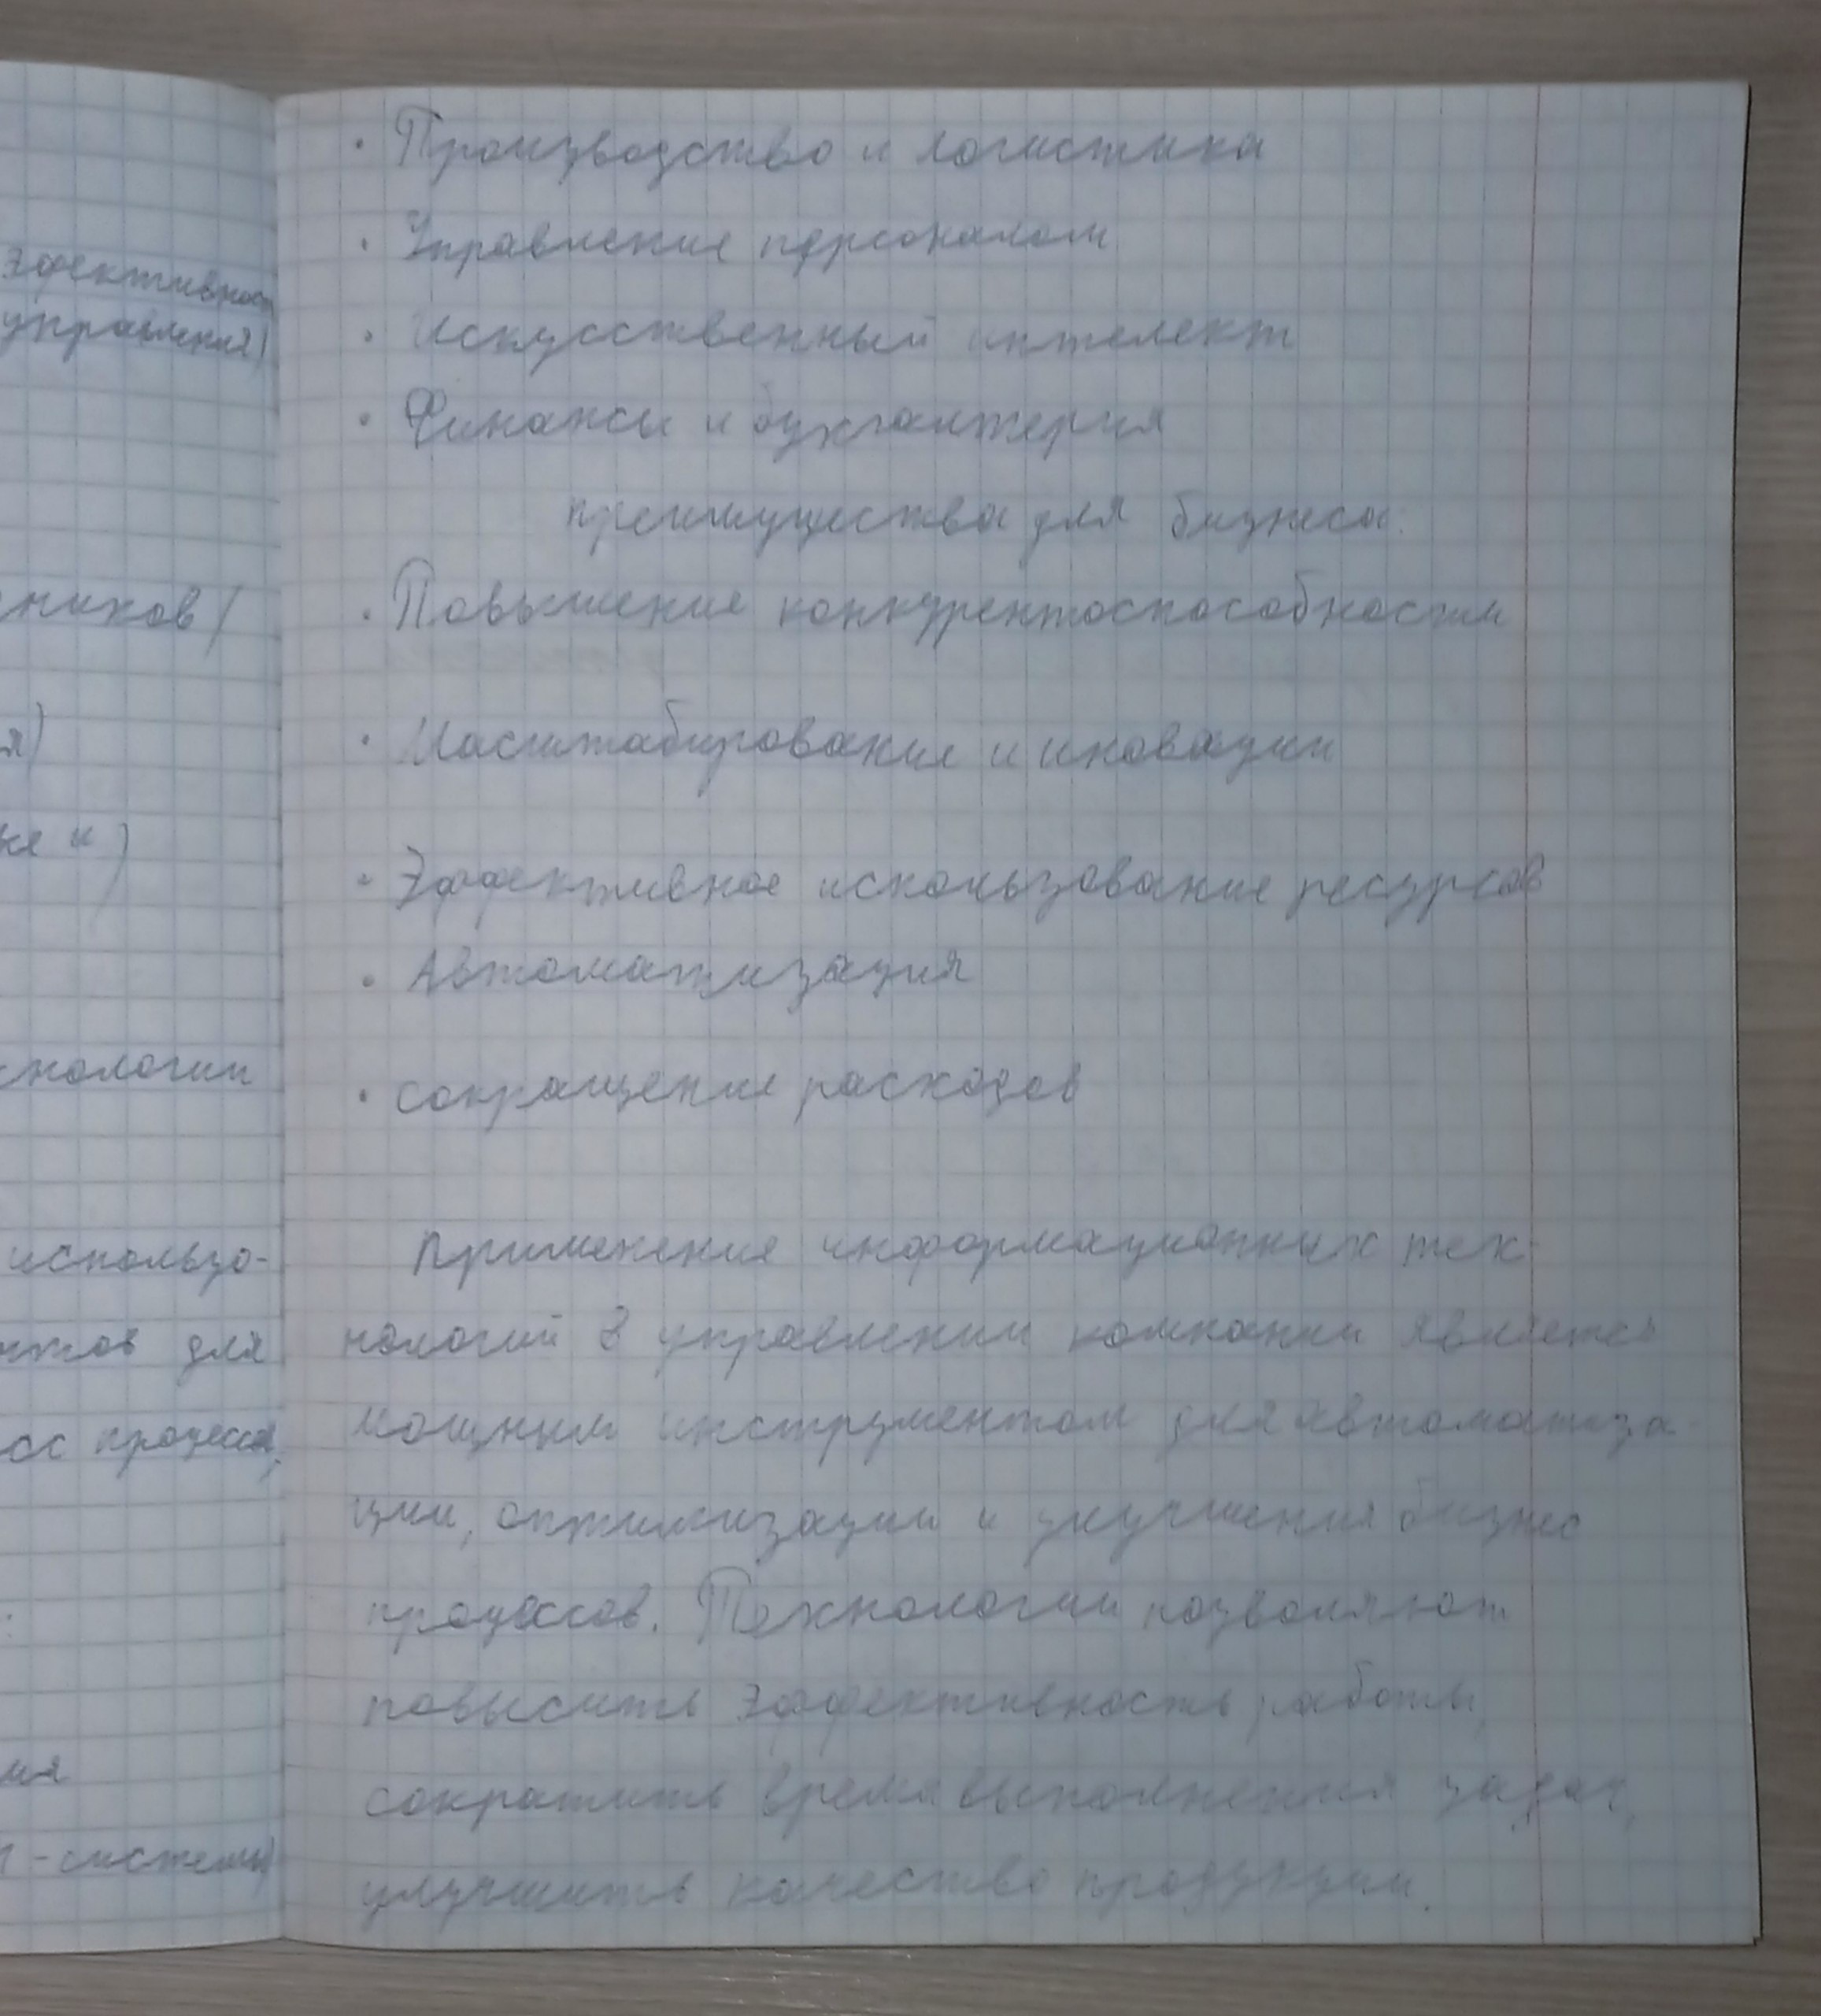 эфективност
управления)
ников)
я)
ке и)
хнологии
использо-
нтов для
сс процесса,
:
ия
-системы)
• Производство и логистика
• Управление персоналом
• Искусственный интелект
• Финансы и бухгалтерия
преимущества для бизнеса:
• Повышение конкурентоспособности
• Масштабирование и иновации
• Эффективное использование ресурсов
• Автоматизация
• сокращение расходов
Применение информационных тех-
нологий в управлении компании является
мощным инструментом для автоматиза-
ции, оптимизации и улучшения бизнес
процессов. Технологии позволяют
повысить эффективность работы,
сократить время выполнения задач,
улучшить качество продукции.